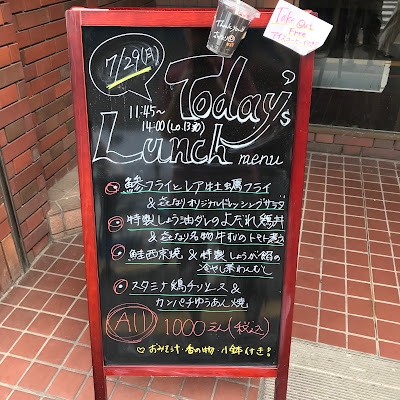 7/29(月)
Today's
Lunch menu
11:45~
14:00 (L.O.13:30)
Take Out
FREE
アイスコーヒー
鯵フライとレア牡蠣フライ
&となりオリジナルドレッシングサラダ
特製しょう油ダレのよだれ鶏丼
&となり名物牛すじのトマト煮込
鮭西京焼&特製しょうが餡の
冷やし茶わんむし
スタミナ鶏チリソース&
カンパチゆうあん焼
All 1000えん(税込)
おみそ汁・香の物・小鉢付き!